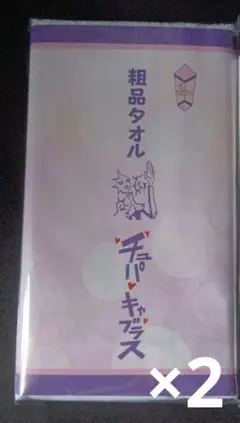 粗品タオル
チュパ
キャブラス
×2